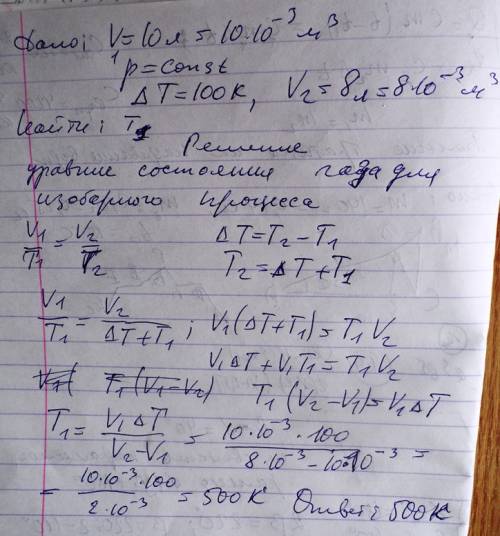 Дано: V₁=10л=10·10⁻³ м³
p=const
ΔT=100К, V₂=8л=8·10⁻³ м³
Найти: T₁
Решение
уравние состояния газа для
изобарного процесса
V₁/T₁ = V₂/T₂    ΔT=T₂-T₁
T₂=ΔT+T₁
V₁/T₁ = V₂/(ΔT+T₁); V₁(ΔT+T₁)=T₁V₂
V₁ΔT+V₁T₁=T₁V₂
V₁( T₁(V₁-V₂) T₁(V₂-V₁)=V₁ΔT
T₁= V₁ΔT/(V₂-V₁) = 10·10⁻³·100/(8·10⁻³-10·10⁻³) =
= 10·10⁻³·100/(2·10⁻³) = 500К Ответ: 500К